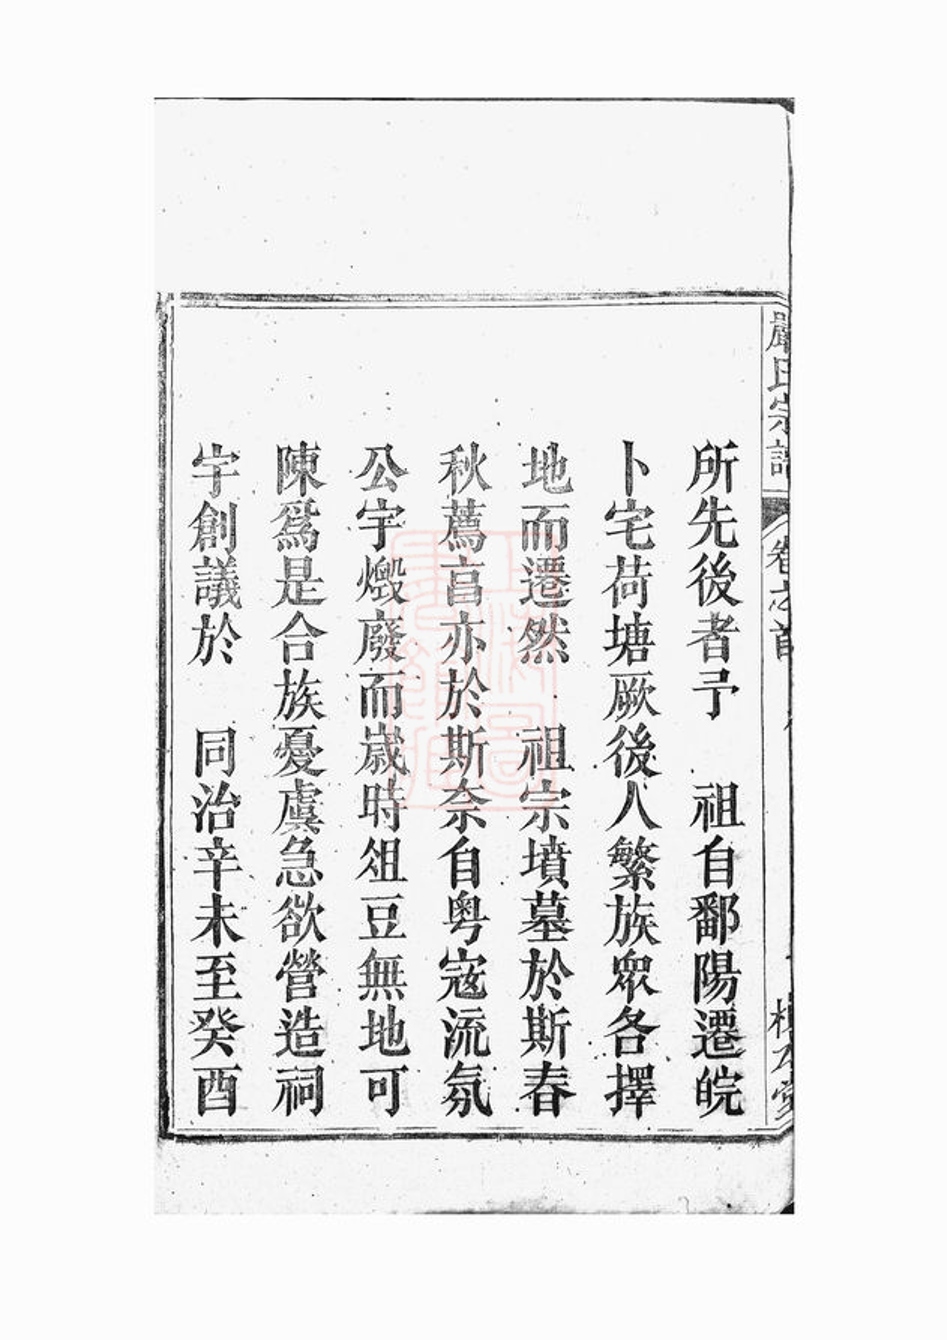 嚴氏宗譜 卷之首
所先後者予 祖自鄱陽遷皖
卜宅荷塘厥後人繁族眾各擇
地而遷然 祖宗墳墓於斯春
秋薦亯亦於斯奈自粵寇流氛
公宇燬廢而歲時俎豆無地可
陳爲是合族憂虞急欲營造祠
宇創議於 同治辛未至癸酉